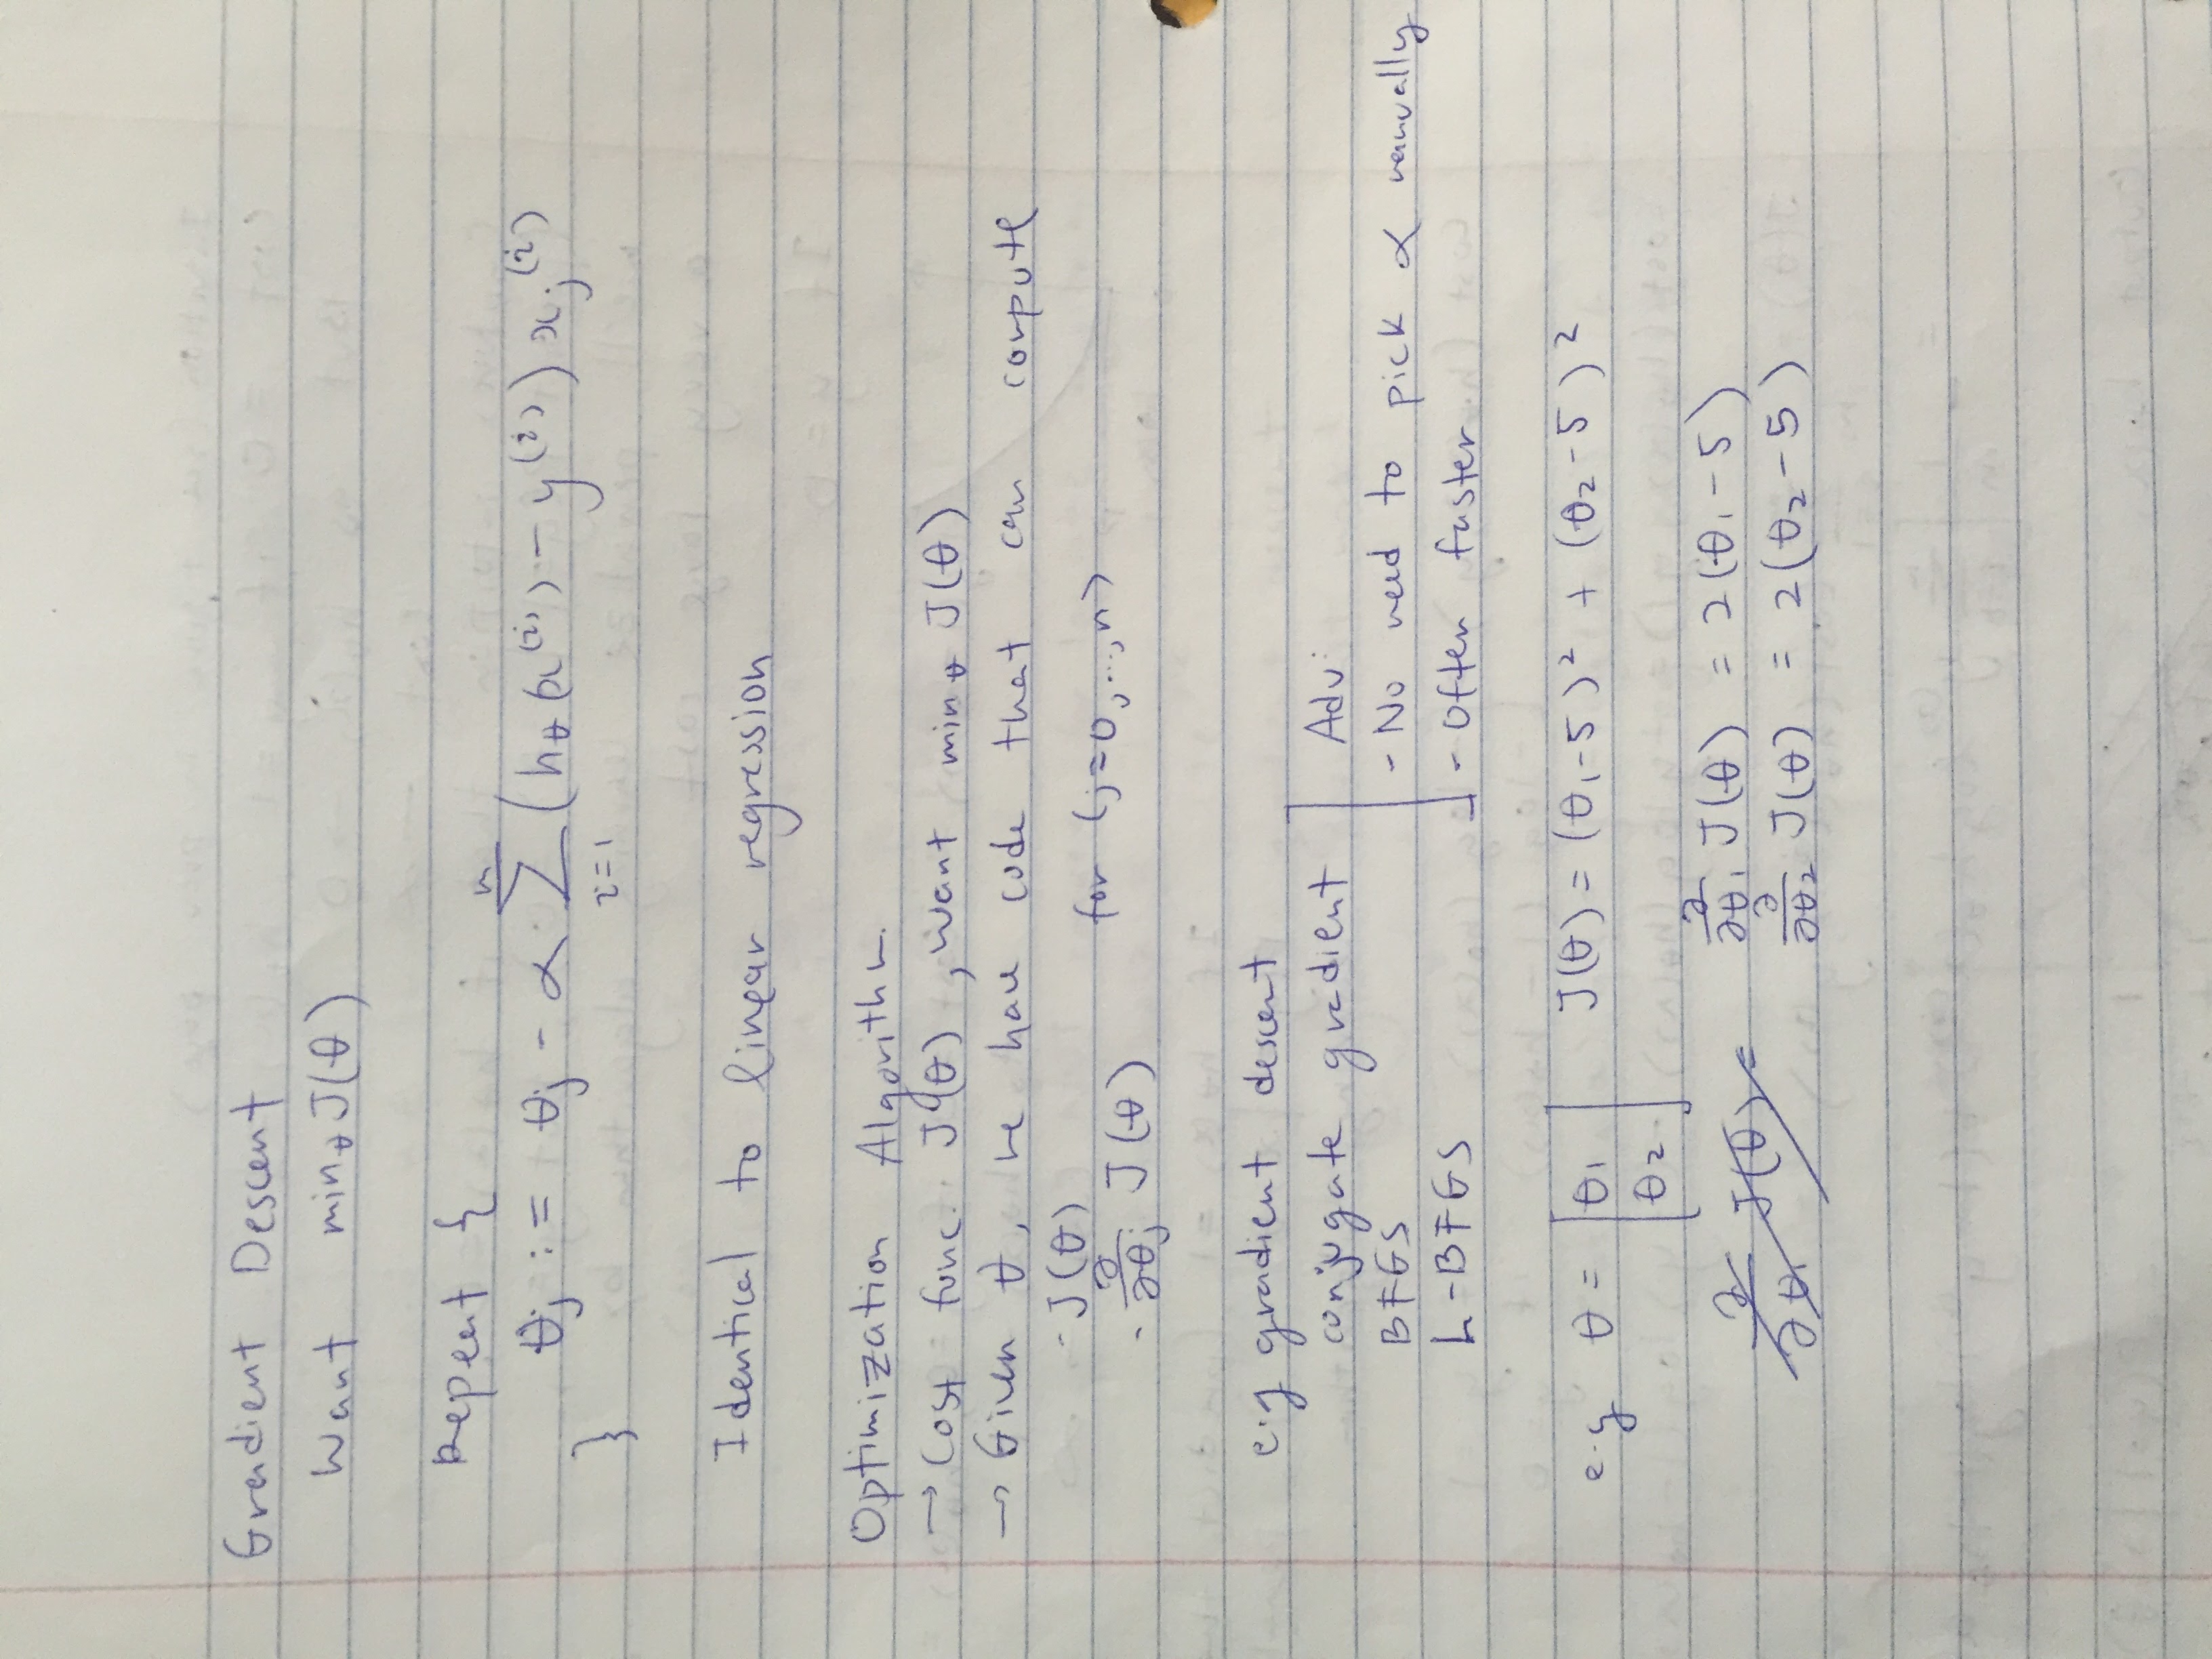 Gradient Descent
Want min_θ J(θ)
Repeat {
θ_j := θ_j - α Σ_{i=1}^{m} (h_θ(x^(i)) - y^(i)) x_j^(i)
}
Identical to linear regression
Optimization Algorithm.
→ Cost func. J(θ), want min_θ J(θ)
→ Given θ, we have code that can compute
- J(θ)
- ∂/∂θ_j J(θ) for (j=0,...,n)
e.g gradient descent
conjugate gradient
BFGS
L-BFGS
Adv:
- No need to pick α manually
- Often faster
e.g θ = [θ1
θ2]
J(θ) = (θ1-5)² + (θ2-5)²
∂/∂θ1 J(θ) =
∂/∂θ1 J(θ) = 2(θ1-5)
∂/∂θ2 J(θ) = 2(θ2-5)